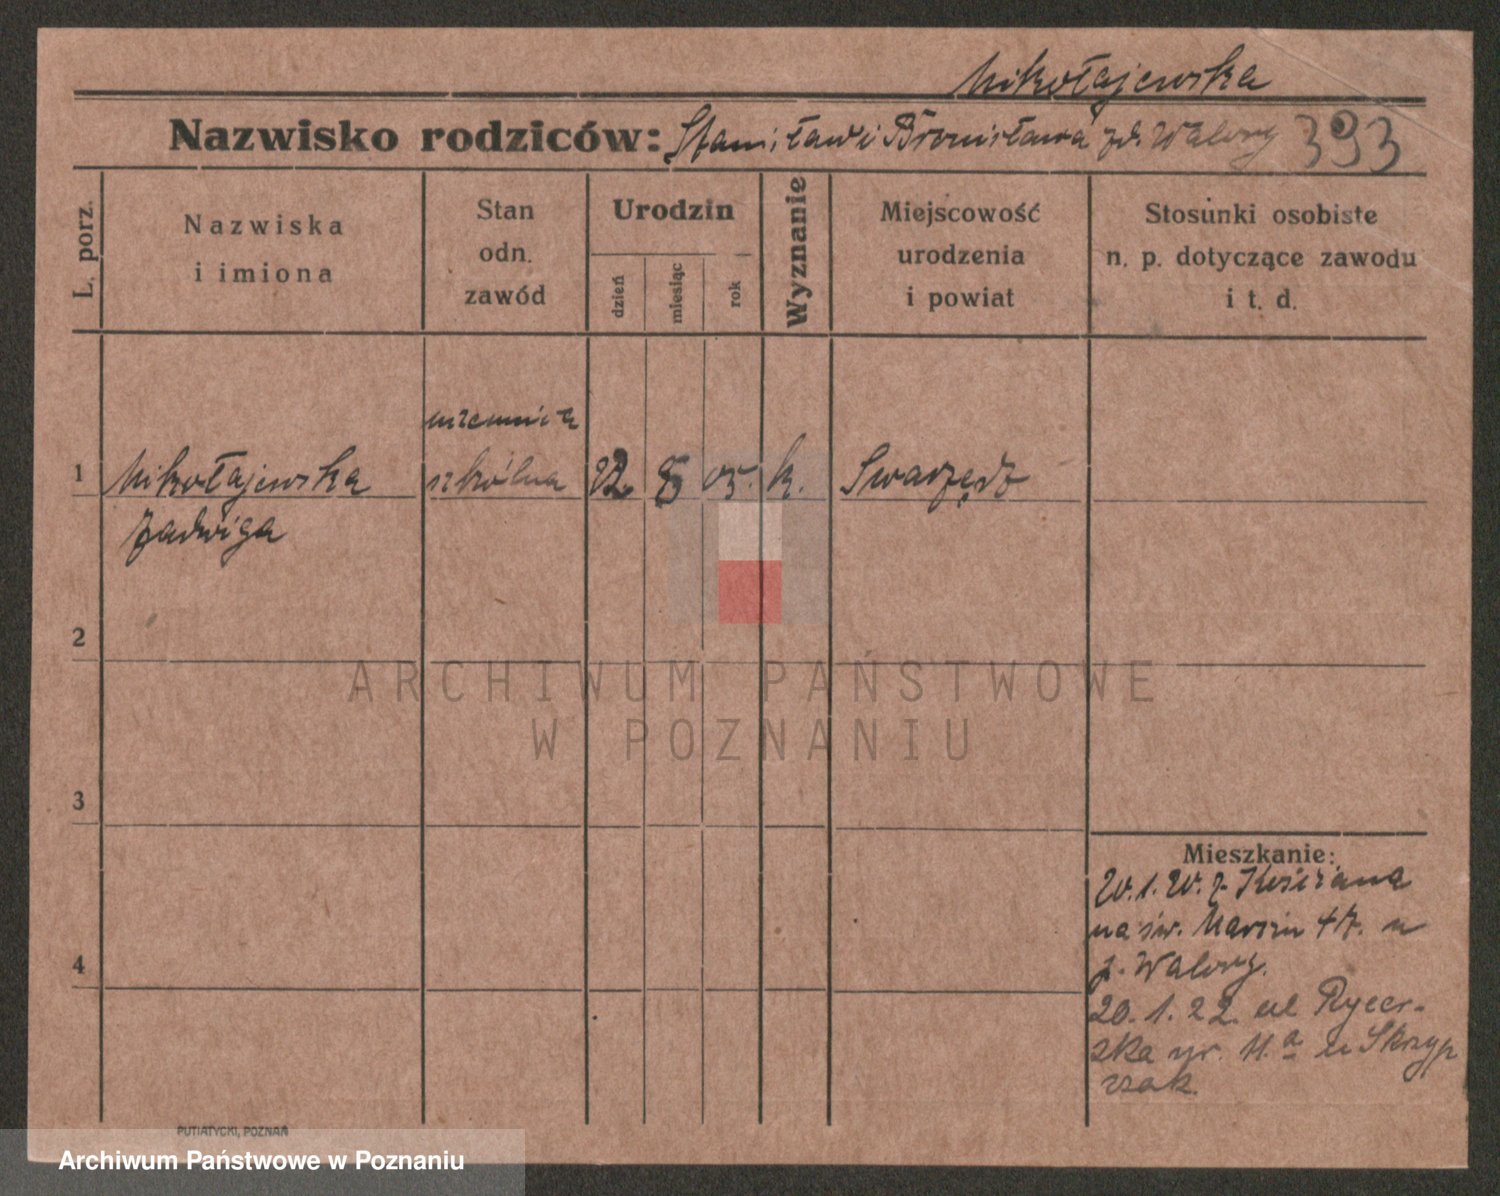 Mikołajewska
Nazwisko rodziców: Stanisław i Bronisława zd. Walory 393
L. porz.
Nazwiska i imiona
Stan odn. zawód
Urodzin
dzień
miesiąc
rok
Wyznanie
Miejscowość urodzenia i powiat
Stosunki osobiste n. p. dotyczące zawodu i t. d.
uczennica
1 Mikołajewska szkólna 22 8 05. k. Swarzędz
Jadwiga
2
3
4
Mieszkanie:
20.1.20. z Kościana
na św. Marcin 47. u
p. Walory.
20.1.22. ul Rycer-
ska nr. 11.a u Skrzyp
czak.
PUTIATYCKI, POZNAŃ
ARCHIWUM PAŃSTWOWE
W POZNANIU
Archiwum Państwowe w Poznaniu